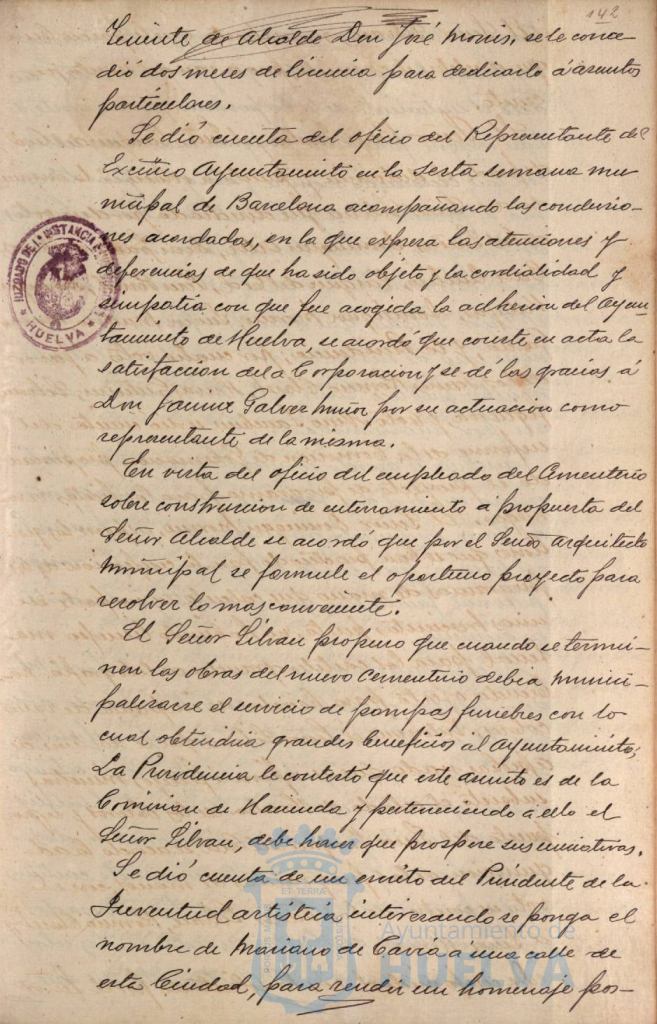 142
Teniente de Alcalde Don José Monis, se le conce
dió dos meses de licencia para dedicarlo á asuntos
particulares.
Se dió cuenta del oficio del Representante del
Excmo Ayuntamiento en la sexta semana mu
nicipal de Barcelona acompañando las conclusio-
nes acordadas, en la que expresa las atenciones y
deferencias de que ha sido objeto y la cordialidad y
simpatia con que fue acogida la adhesion del Ayun
tamiento de Huelva, se acordó que conste en acta la
satisfaccion de la Corporacion y se dé las gracias á
Don Jaime Galvez Muñoz por su actuacion como
representante de la misma.
En vista del oficio del empleado del Cementerio
sobre construccion de enterramiento á propuesta del
Señor Alcalde se acordó que por el Señor Arquitecto
Municipal se formule el oportuno proyecto para
resolver lo mas conveniente.
El Señor Silvan propuso que cuando se termi-
nen las obras del nuevo Cementerio debia munici-
palizarse el servicio de pompas funebres con lo
cual obtendria grandes beneficios el Ayuntamiento;
La Presidencia le contestó que este asunto es de la
Comision de Hacienda y perteneciendo á ello el
Señor Silvan, debe hacer que prospere sus iniciativas.
Se dió cuenta de un escrito del Presidente de la
Juventud artistica interesando se ponga el
nombre de Mariano de Cavia á una calle de
esta Ciudad, para rendir un homenaje pos-
JUZGADO DE 1ª INSTANCIA
HUELVA
Ayuntamiento de
HUELVA